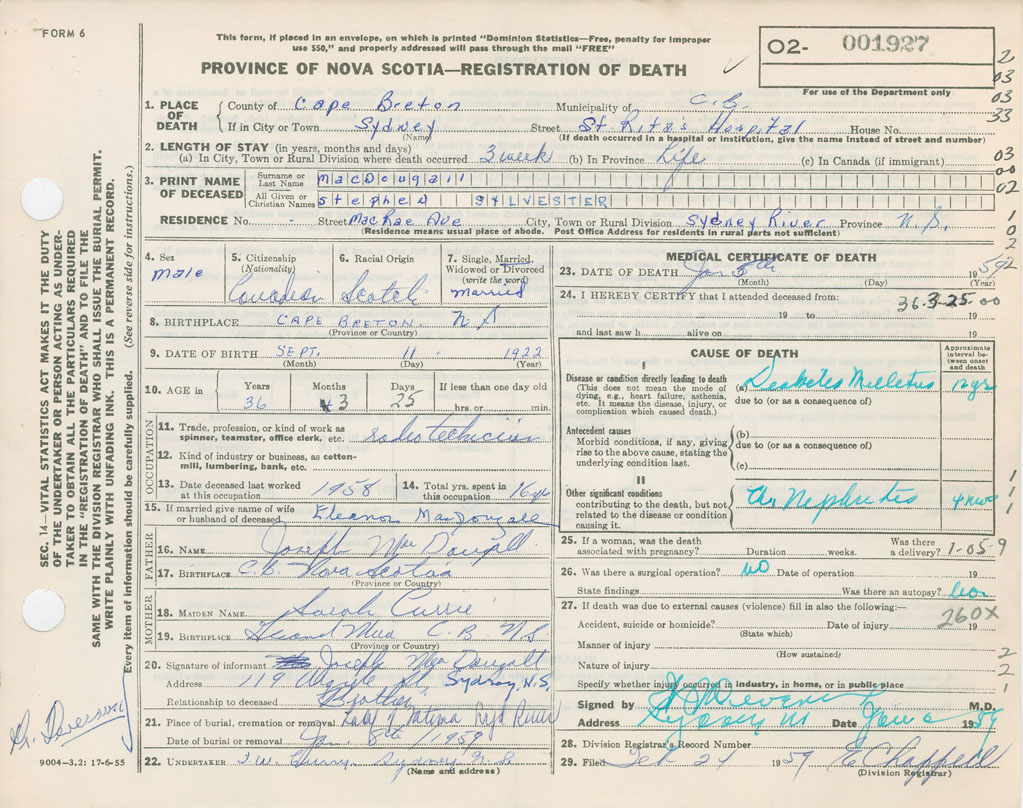 FORM 6
This form, if placed in an envelope, on which is printed "Dominion Statistics—Free, penalty for improper
use $50," and properly addressed will pass through the mail "FREE"
O2- 001927
For use of the Department only
PROVINCE OF NOVA SCOTIA—REGISTRATION OF DEATH
2
03
03
33
03
00
02
1
0
2
SEC. 14—VITAL STATISTICS ACT MAKES IT THE DUTY
OF THE UNDERTAKER OR PERSON ACTING AS UNDER-
TAKER TO OBTAIN ALL THE PARTICULARS REQUIRED
IN THE "REGISTRATION OF DEATH" AND TO FILE THE
SAME WITH THE DIVISION REGISTRAR WHO SHALL ISSUE THE BURIAL PERMIT.
WRITE PLAINLY WITH UNFADING INK. THIS IS A PERMANENT RECORD.
Every item of information should be carefully supplied. (See reverse side for instructions.)
1. PLACE OF DEATH County of Cape Breton Municipality of C.B.
If in City or Town Sydney Street St. Rita's Hospital House No.
(Name) (If death occurred in a hospital or institution, give the name instead of street and number)
2. LENGTH OF STAY (in years, months and days)
(a) In City, Town or Rural Division where death occurred 3 week (b) In Province Life (c) In Canada (if immigrant)
3. PRINT NAME OF DECEASED Surname or Last Name MacDougall
All Given or Christian Names Stephen SYLVESTER
RESIDENCE No. - Street MacRae Ave City, Town or Rural Division Sydney River Province N.S.
(Residence means usual place of abode. Post Office Address for residents in rural parts not sufficient)
4. Sex
male
5. Citizenship
(Nationality)
Canadian
6. Racial Origin
Scotch
7. Single, Married,
Widowed or Divorced
(write the word)
married
8. BIRTHPLACE CAPE BRETON. N S
(Province or Country)
9. DATE OF BIRTH SEPT. 11 1922
(Month) (Day) (Year)
10. AGE in Years Months Days If less than one day old
36 3 25 hrs. or min.
OCCUPATION
11. Trade, profession, or kind of work as
spinner, teamster, office clerk, etc. Radio technician
12. Kind of industry or business, as cotton-
mill, lumbering, bank, etc.
13. Date deceased last worked
at this occupation 1958
14. Total yrs. spent in
this occupation 16 yr
15. If married give name of wife
or husband of deceased Eleanor MacDougall
FATHER
16. NAME Joseph MacDougall
17. BIRTHPLACE C.B. Nova Scotia
(Province or Country)
MOTHER
18. MAIDEN NAME Sarah Currie
19. BIRTHPLACE Grand Mira C.B. N.S
(Province or Country)
20. Signature of informant Joseph MacDougall
Address 119 St, Sydney, N.S.
Relationship to deceased Brother
21. Place of burial, cremation or removal Lady of Fatima Syd River
Date of burial or removal Jan. 8th / 1959
22. UNDERTAKER Sydney N.S.
(Name and address)
9004-3.2: 17-6-55
MEDICAL CERTIFICATE OF DEATH
23. DATE OF DEATH Jan 5th 1959
(Month) (Day) (Year)
24. I HEREBY CERTIFY that I attended deceased from:
36-3-25-00
19 to 19
and last saw h alive on 19
CAUSE OF DEATH
Approximate
interval be-
tween onset
and death
I
Disease or condition directly leading to death
(This does not mean the mode of
dying, e.g., heart failure, asthenia,
etc. It means the disease, injury, or
complication which caused death.)
(a) Diabetes Mellitus 12 yrs
due to (or as a consequence of)
Antecedent causes
Morbid conditions, if any, giving
rise to the above cause, stating the
underlying condition last.
(b)
due to (or as a consequence of)
(c)
II
Other significant conditions
contributing to the death, but not
related to the disease or condition
causing it.
Chr Nephritis
1
1
1
25. If a woman, was the death
associated with pregnancy? Duration weeks. Was there
a delivery? 1-05-9
26. Was there a surgical operation? NO Date of operation 19
State findings Was there an autopsy? no
27. If death was due to external causes (violence) fill in also the following:—
260X
Accident, suicide or homicide? Date of injury 19
(State which)
Manner of injury
(How sustained)
Nature of injury
2
2
1
Specify whether injury occurred in industry, in home, or in public place
Signed by M.D.
Address Sydney NS Date Jan 6 1959
28. Division Registrar's Record Number
29. Filed Feb 24 1959 E Chappell
(Division Registrar)